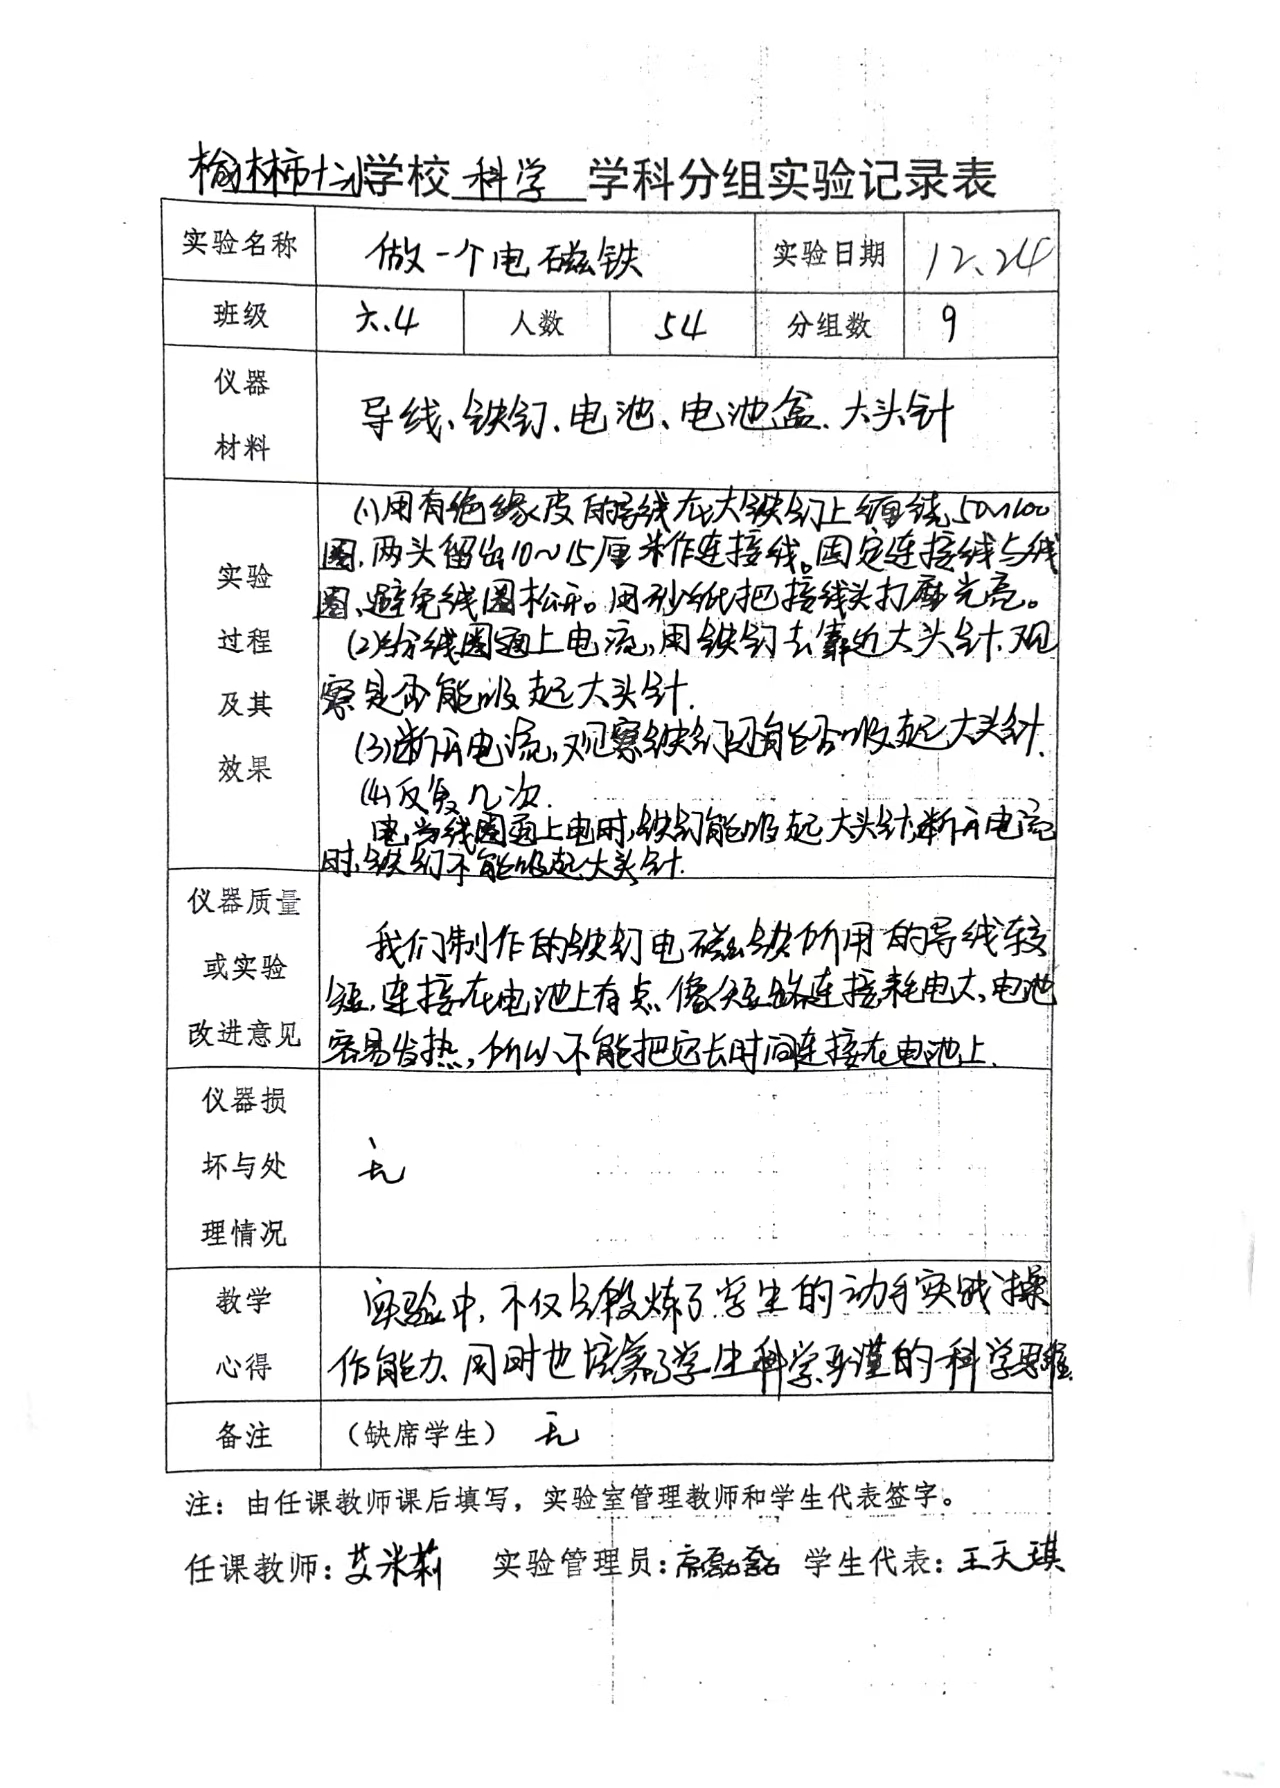 榆林市十小学校 科学 学科分组实验记录表
实验名称 做一个电磁铁 实验日期 12.24
班级 六.4 人数 54 分组数 9
仪器
材料
导线、铁钉、电池、电池盒、大头针
实验
过程
及其
效果
(1)用有绝缘皮的导线在大铁钉上缠绕50~100
圈,两头留出10~15厘米作连接线。固定连接线与线
圈,避免线圈松开。用砂纸把接线头打磨光亮。
(2)给线圈通上电流,用铁钉去靠近大头针,观
察是否能吸起大头针.
(3)断开电流,观察铁钉还能否吸起大头针.
(4)反复几次.
当线圈通上电时,铁钉能吸起大头针,断开电流
时,铁钉不能吸起大头针.
仪器质量
或实验
改进意见
我们制作的铁钉电磁铁所用的导线较
短,连接在电池上有点像短路连接耗电大,电池
容易发热,所以不能把它长时间连接在电池上.
仪器损
坏与处
理情况
无
教学
心得
实验中,不仅锻炼了学生的动手实践操
作能力、同时也培养了学生科学严谨的科学思维.
备注 (缺席学生) 无
注:由任课教师课后填写,实验室管理教师和学生代表签字。
任课教师:艾米莉 实验管理员:席磊磊 学生代表:王天琪